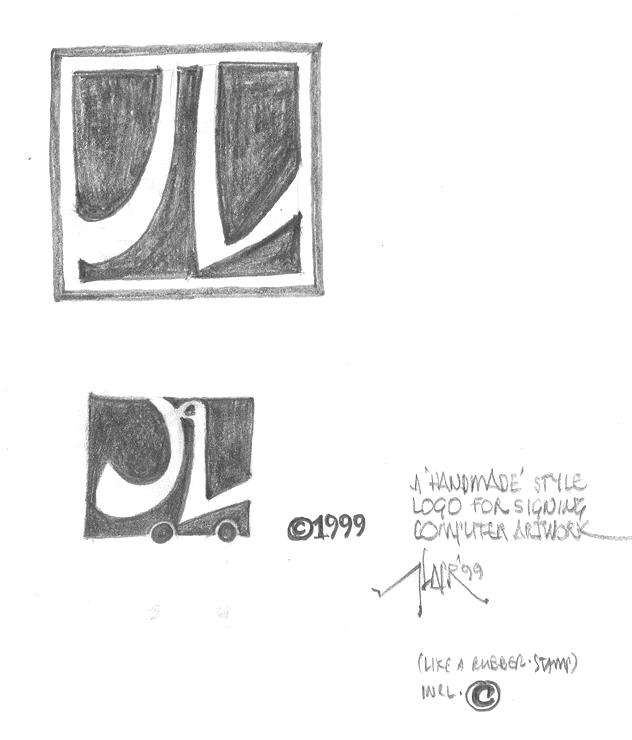 JL
JL
©1999
A 'HANDMADE' STYLE
LOGO FOR SIGNING
COMPUTER ARTWORK
'99
(LIKE A RUBBER·STAMP)
INCL. ©